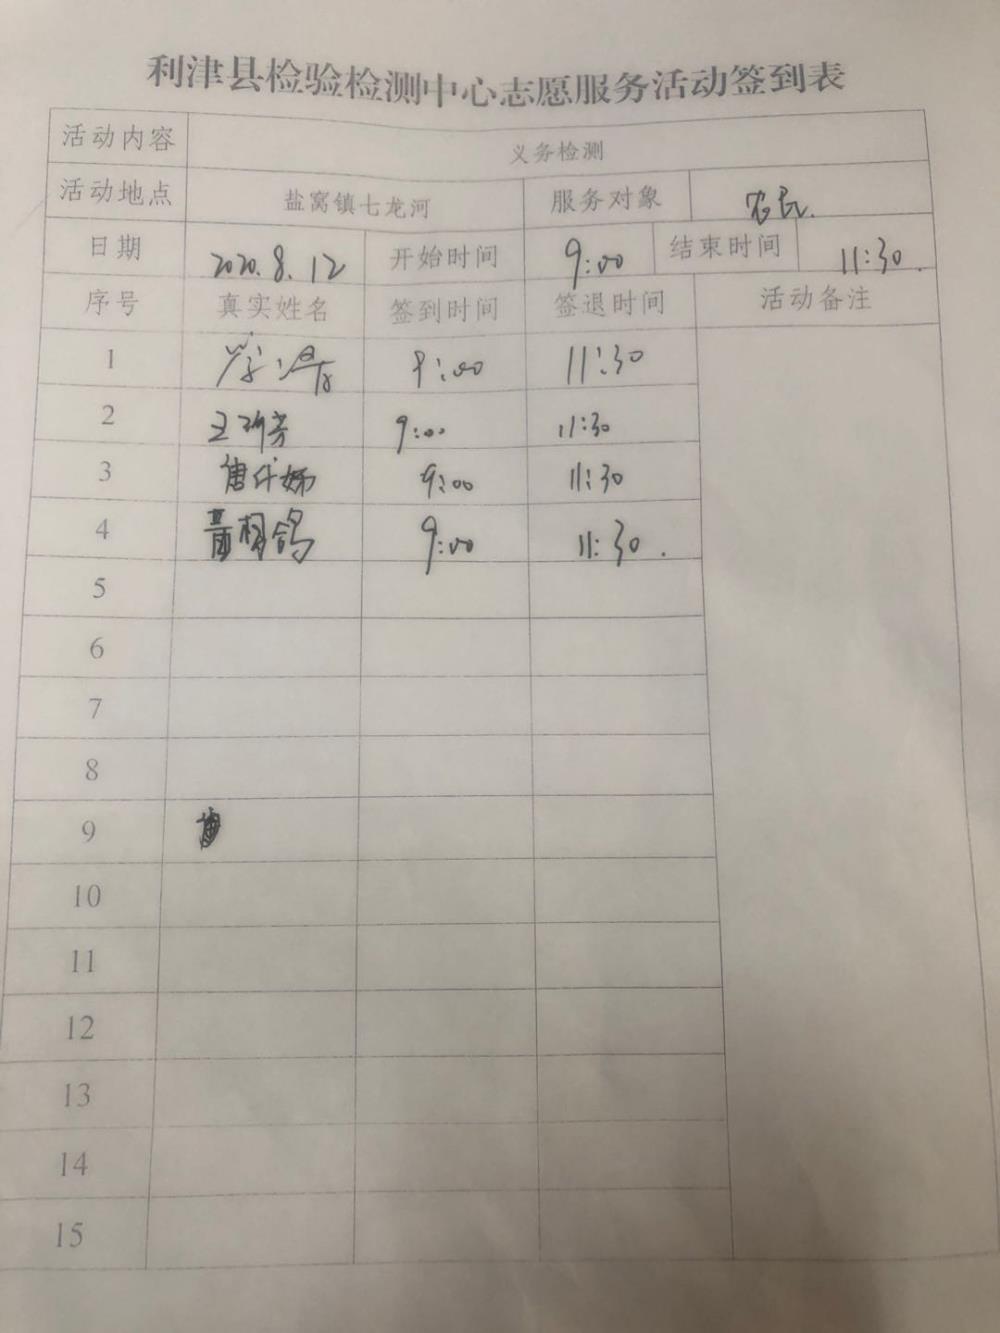 利津县检验检测中心志愿服务活动签到表
活动内容 义务检测
活动地点 盐窝镇七龙河 服务对象 农民.
日期 2020.8.12 开始时间 9:00 结束时间 11:30.
序号 真实姓名 签到时间 签退时间 活动备注
1 9:00 11:30
2 王 芳 9:00 11:30
3 9:00 11:30
4 9:00 11:30.
5
6
7
8
9
10
11
12
13
14
15